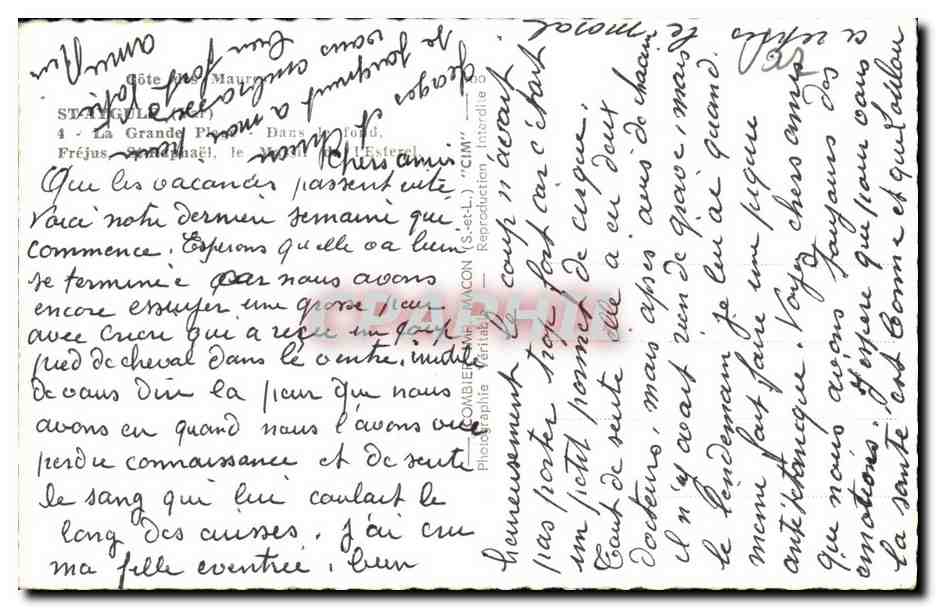 Côte des Maures
ST-AYGULF (Var)
4 - La Grande Plage - Dans le fond,
Fréjus, St-Raphaël, le Massif de l'Esterel
COMBIER IMP. MACON (S.-et-L.) "CIM"
Photographie Véritable - Reproduction Interdite
CPAPHIL
Chers amis
Que les vacances passent vite
Voici notre dernière semaine qui
commence. Espérons qu'elle va bien
se terminée car nous avons
encore essuyer une grosse peur
avec qui a reçu un coup
pied de cheval dans le ventre, inutile
de vous dire la peur que nous
avons eu quand nous l'avons vue
perdre connaissance et de suite
le sang qui lui coulait le
long des cuisses. J'ai cru
ma fille éventrée, bien
heureusement le coup n'avait
pas porter trop fort car c'était
un petit poney de cirque.
Tout de suite elle a eu deux
docteurs, mais après avis de chacun
il n'y avait rien de grave, mais
le lendemain je leur ai quand
même fait faire une piqure
antitétanique. Voyez chers amis
que nous avons toujours des
émotions. J'espère que pour vous
la santé est bonne et que Loulou
a repris le moral.
je joignent a moi pour
vous embrasser bien fort
amitiés